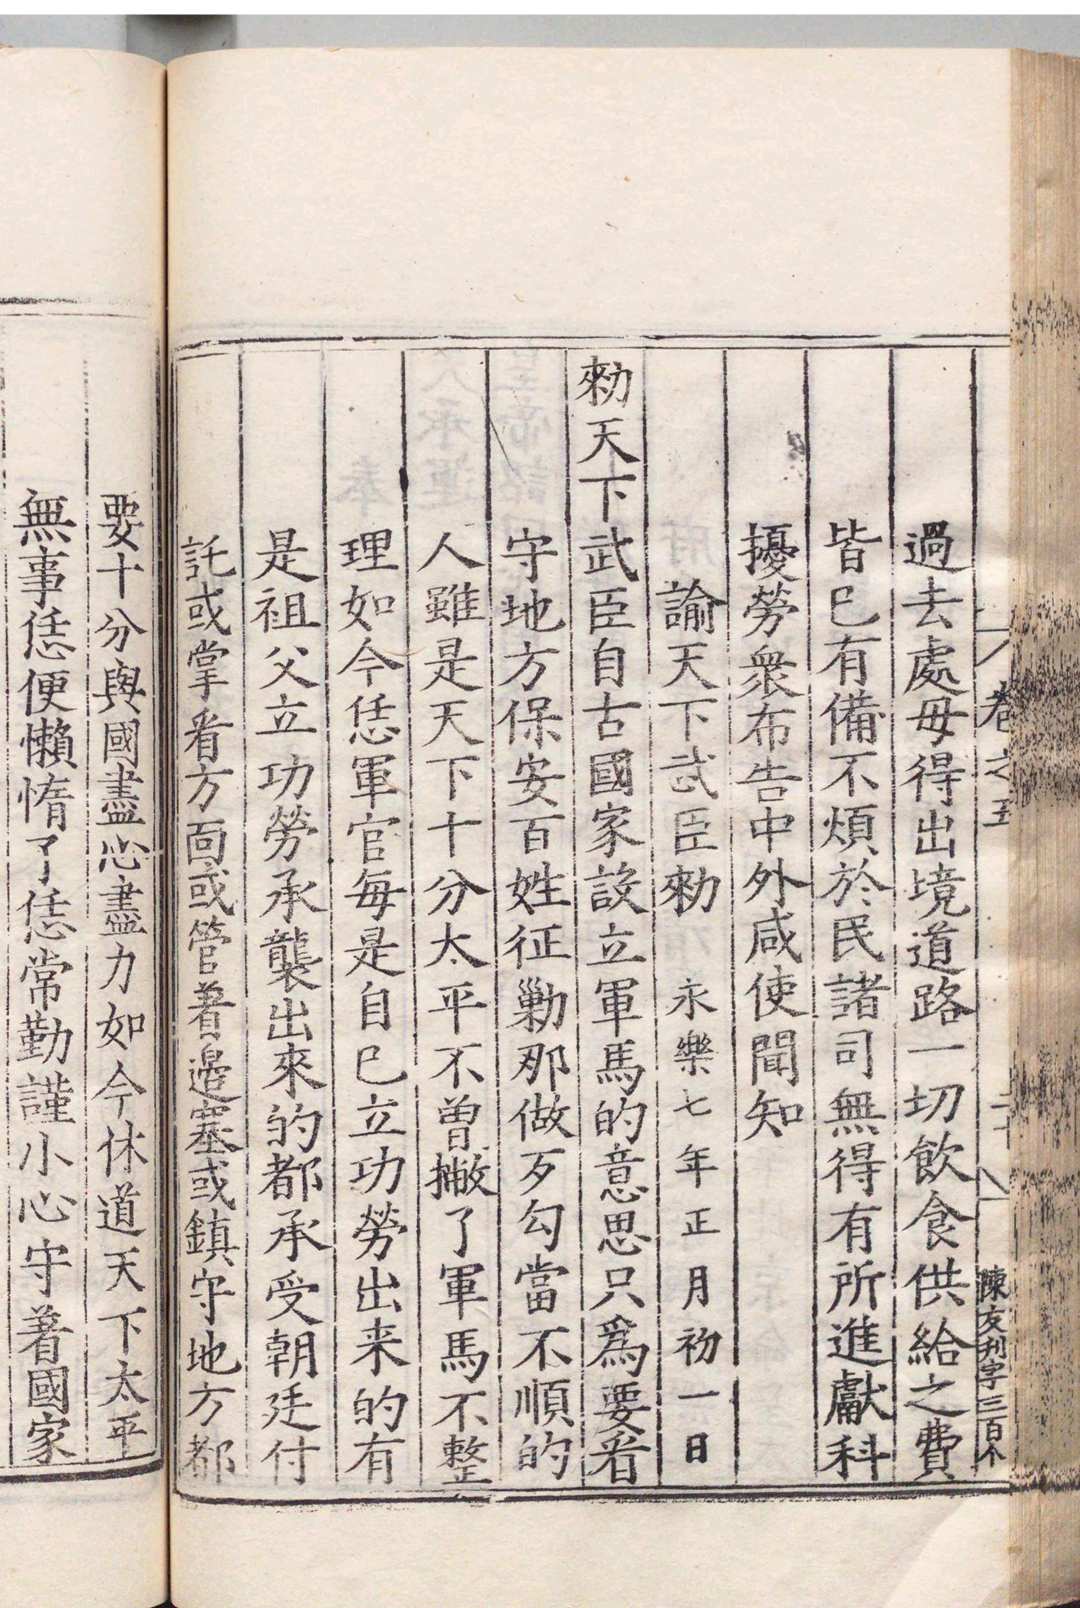 卷之五
陳友刋字三百个
過去處毋得出境道路一切飮食供給之費
皆已有備不煩於民諸司無得有所進獻科
擾勞衆布告中外咸使聞知
諭天下武臣勑　永樂七年正月初一日
勑天下武臣自古國家設立軍馬的意思只爲要看
守地方保安百姓征勦那做歹勾當不順的
人雖是天下十分太平不曾撇了軍馬不整
理如今恁軍官每是自已立功勞出来的有
是祖父立功勞承襲出來的都承受朝廷付
託或掌着方面或管着邉塞或鎮守地方都
要十分與國盡心盡力如今休道天下太平
無事恁便懶惰了恁常勤謹小心守着國家